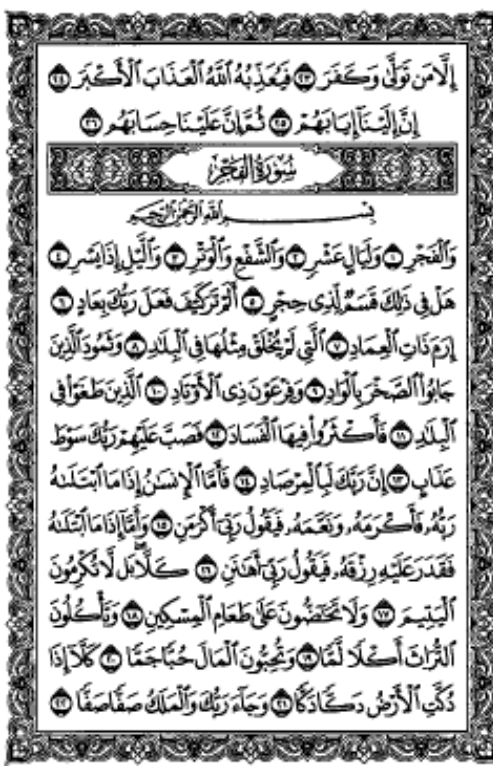 إِلَّا مَن تَوَلَّىٰ وَكَفَرَ ٢٣ فَيُعَذِّبُهُ ٱللَّهُ ٱلْعَذَابَ ٱلْأَكْبَرَ ٢٤
إِنَّ إِلَيْنَآ إِيَابَهُمْ ٢٥ ثُمَّ إِنَّ عَلَيْنَا حِسَابَهُم ٢٦
سُورَةُ الفَجْرِ
بِسْمِ ٱللَّهِ ٱلرَّحْمَٰنِ ٱلرَّحِيمِ
وَٱلْفَجْرِ ١ وَلَيَالٍ عَشْرٍ ٢ وَٱلشَّفْعِ وَٱلْوَتْرِ ٣ وَٱلَّيْلِ إِذَا يَسْرِ ٤
هَلْ فِى ذَٰلِكَ قَسَمٌ لِّذِى حِجْرٍ ٥ أَلَمْ تَرَ كَيْفَ فَعَلَ رَبُّكَ بِعَادٍ ٦
إِرَمَ ذَاتِ ٱلْعِمَادِ ٧ ٱلَّتِى لَمْ يُخْلَقْ مِثْلُهَا فِى ٱلْبِلَٰدِ ٨ وَثَمُودَ ٱلَّذِينَ
جَابُوا۟ ٱلصَّخْرَ بِٱلْوَادِ ٩ وَفِرْعَوْنَ ذِى ٱلْأَوْتَادِ ١٠ ٱلَّذِينَ طَغَوْا۟ فِى
ٱلْبِلَٰدِ ١١ فَأَكْثَرُوا۟ فِيهَا ٱلْفَسَادَ ١٢ فَصَبَّ عَلَيْهِمْ رَبُّكَ سَوْطَ
عَذَابٍ ١٣ إِنَّ رَبَّكَ لَبِٱلْمِرْصَادِ ١٤ فَأَمَّا ٱلْإِنسَٰنُ إِذَا مَا ٱبْتَلَىٰهُ
رَبُّهُۥ فَأَكْرَمَهُۥ وَنَعَّمَهُۥ فَيَقُولُ رَبِّىٓ أَكْرَمَنِ ١٥ وَأَمَّآ إِذَا مَا ٱبْتَلَىٰهُ
فَقَدَرَ عَلَيْهِ رِزْقَهُۥ فَيَقُولُ رَبِّىٓ أَهَٰنَنِ ١٦ كَلَّا ۖ بَل لَّا تُكْرِمُونَ
ٱلْيَتِيمَ ١٧ وَلَا تَحَٰٓضُّونَ عَلَىٰ طَعَامِ ٱلْمِسْكِينِ ١٨ وَتَأْكُلُونَ
ٱلتُّرَاثَ أَكْلًا لَّمًّا ١٩ وَتُحِبُّونَ ٱلْمَالَ حُبًّا جَمًّا ٢٠ كَلَّآ إِذَا
دُكَّتِ ٱلْأَرْضُ دَكًّا دَكًّا ٢١ وَجَآءَ رَبُّكَ وَٱلْمَلَكُ صَفًّا صَفًّا ٢٢